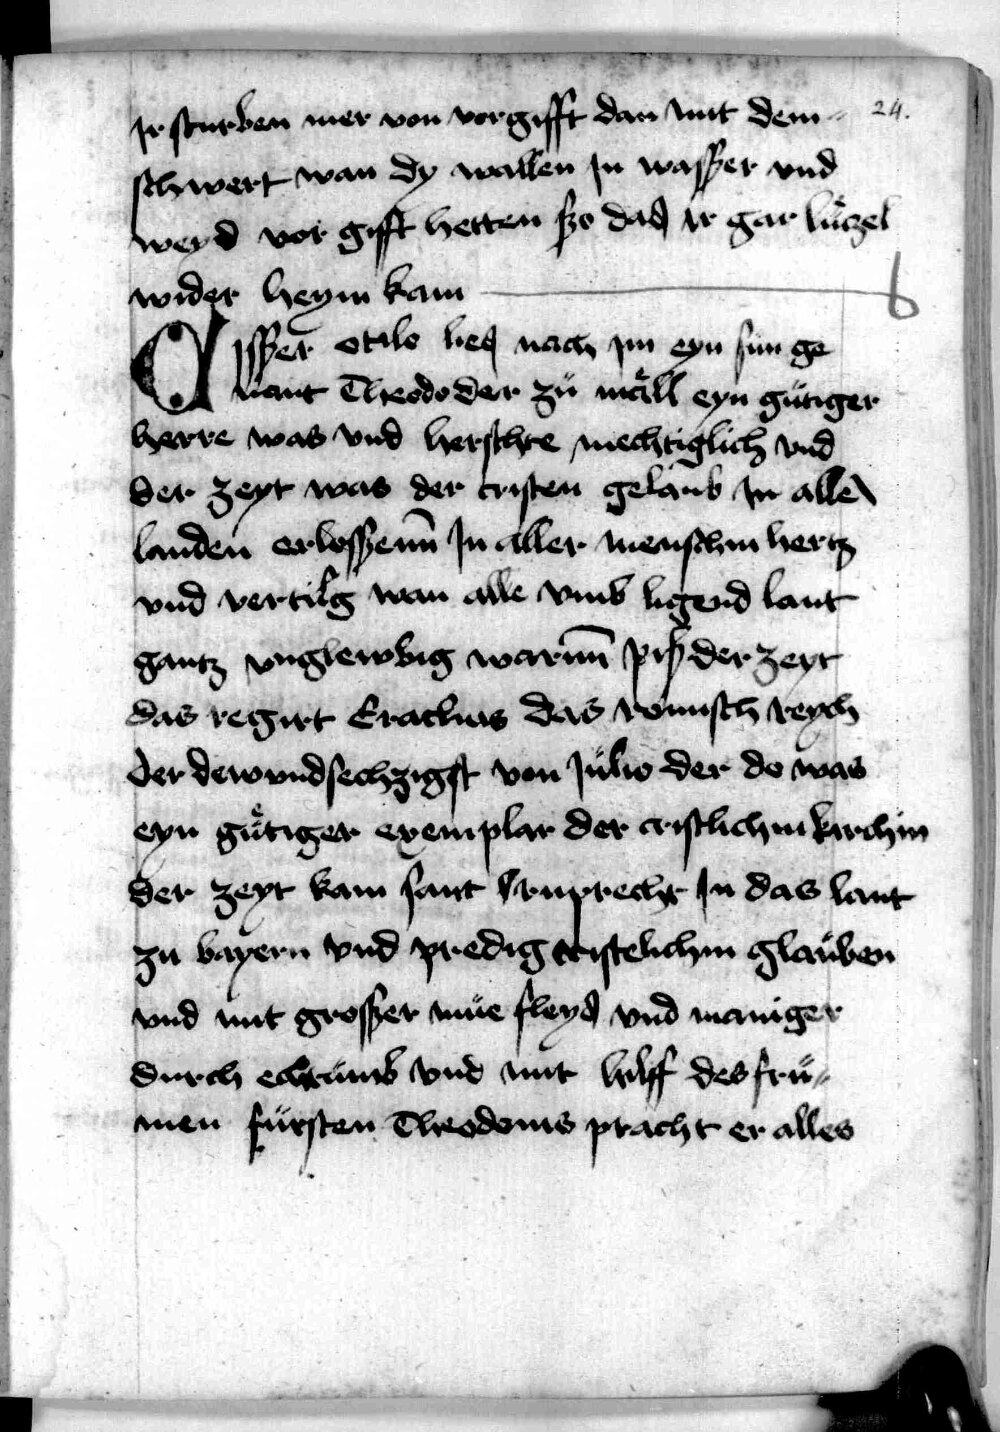 Ir sturben mer von vorgifft dan mit dem 24.
schwert wan dy wallen In wasszer vnd
weyd vor gifft hetten szo das ir gar lüczel
wider heym kam
Disszer otilo lies nach im eyn sun ge
nant Theodo der zü mäll eyn gütiger
herre was vnd herschte mechtiglich vnd
der zeyt was der cristen gelaub In allen
landen erlosszenn In aller menschin hertz
vnd vertilg wan alle vmb ligend lant
gantz vnglewbig warnn der zeyt
das regirt Eraclius das romisch reych
der dewvndsechzigst von Julio der do was
eyn gütiger exemplar der cristlichin kirchin
der zeyt kam sant ruprecht In das lant
zu bayern vnd predig cristelichin glauben
vnd mit grosszer müe fleys vnd maniger
durch vnd mit hilff des frü-
men fürsten Theodonis pracht er alles